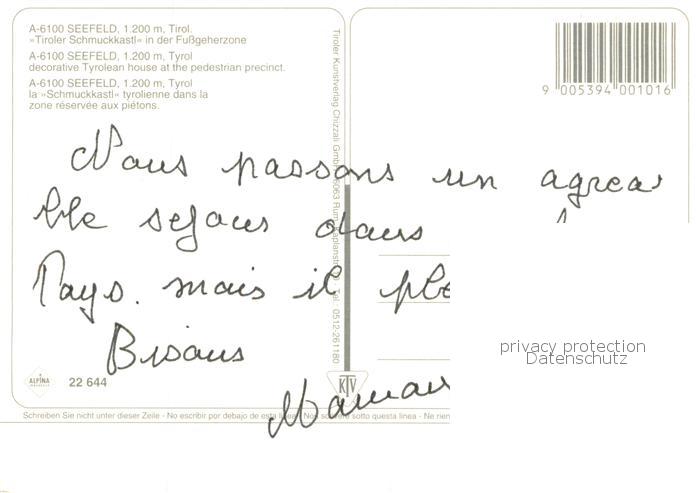 A-6100 SEEFELD, 1.200 m, Tirol.
»Tiroler Schmuckkastl« in der Fußgeherzone
A-6100 SEEFELD, 1.200 m, Tyrol
decorative Tyrolean house at the pedestrian precinct.
A-6100 SEEFELD, 1.200 m, Tyrol
la »Schmuckkastl« tyrolienne dans la
zone réservée aux piétons.
9 005394 001016
Tiroler Kunstverlag Chizzali GmbH 6063 Rum Tel.: 0512-261180
Nous passons un agrea
ble sejous dans
Pays. mais il
Bisous
Maman
ALPINA
22 644
KTV
privacy protection
Datenschutz
Schreiben Sie nicht unter dieser Zeile - No escribir por debajo de esta sotto questa linea - Ne